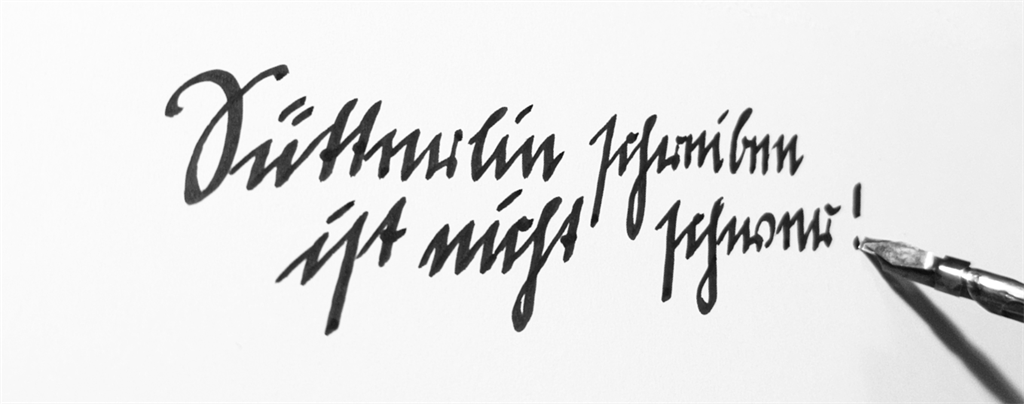 Sütterlin schreiben
ist nicht schwer!